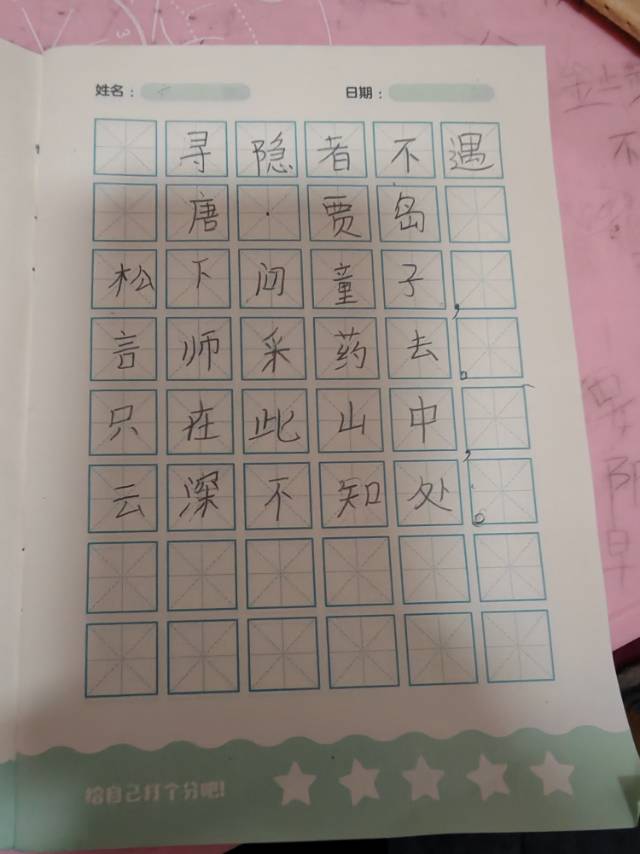 姓名： 日期：
寻隐者不遇
唐·贾岛
松下问童子，
言师采药去。
只在此山中，
云深不知处。
给自己打个分吧!